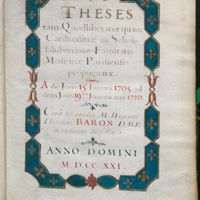 THESES
tam Quodlibetariæ quam
Cardinalitiæ in Scholis
Saluberrimæ Facultatis
Medicinæ Parisiensis
propugnatæ.
A die Jovis 15 1705 ad
diem Jovis 19 1720.
Curâ et studio M.
Theodori BARON D.M.P.
ANNO DOMINI
M.DCC XXI.